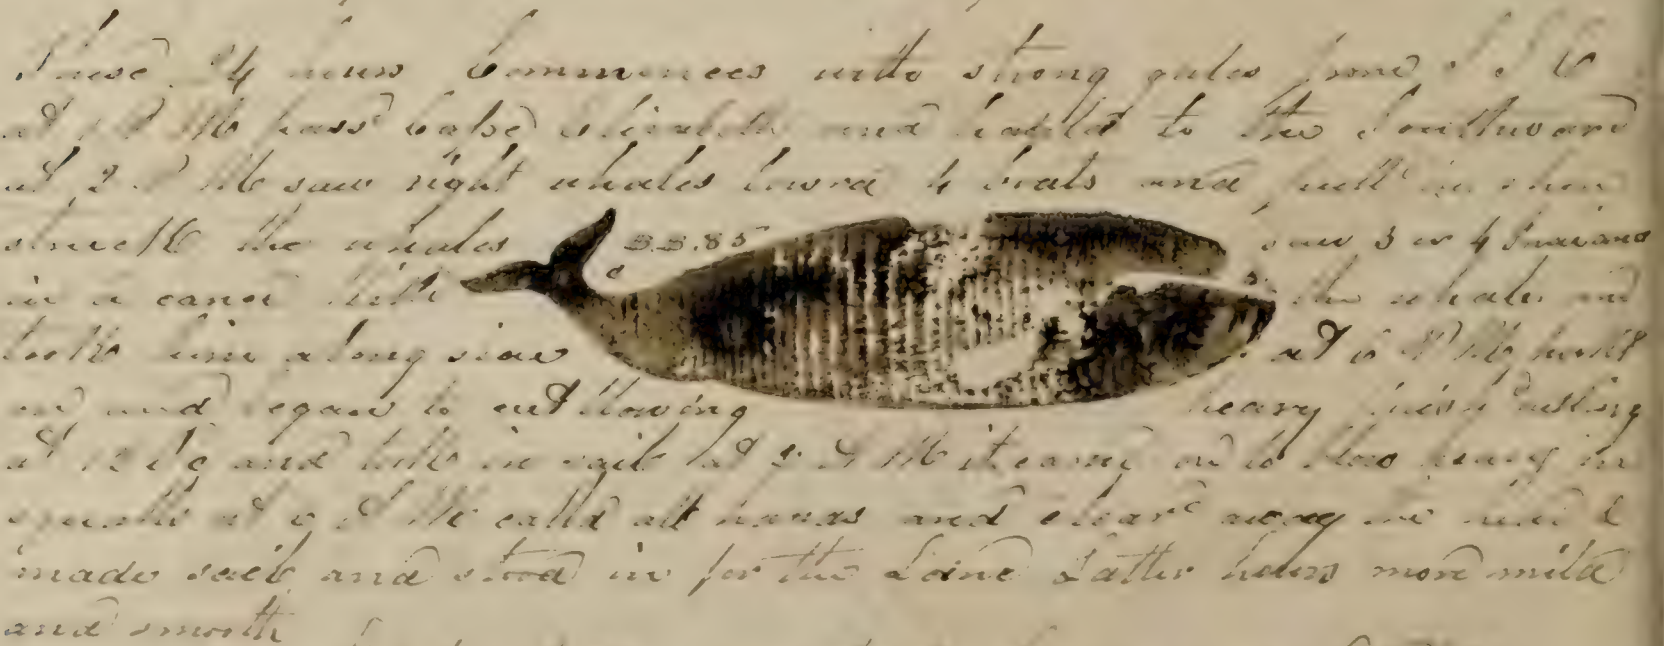 These 24 hours Commences with strong gales from S S E
at 1 P M pass cape elizabeth and hauld to the Southward
at 2 P M saw right whales lowrd 4 boats and pull in shore
struck the whales B B. 85 saw 3 or 4
in a canoe the whales and
took him along side at 6 P M
and began to cut blowing heavy
and took in sail at 2 A M it came on to blow heavy in
squalls at 9 A M calld all hands and clear away the
made sail and stood in for the Loine Latter hours more mild
and smooth